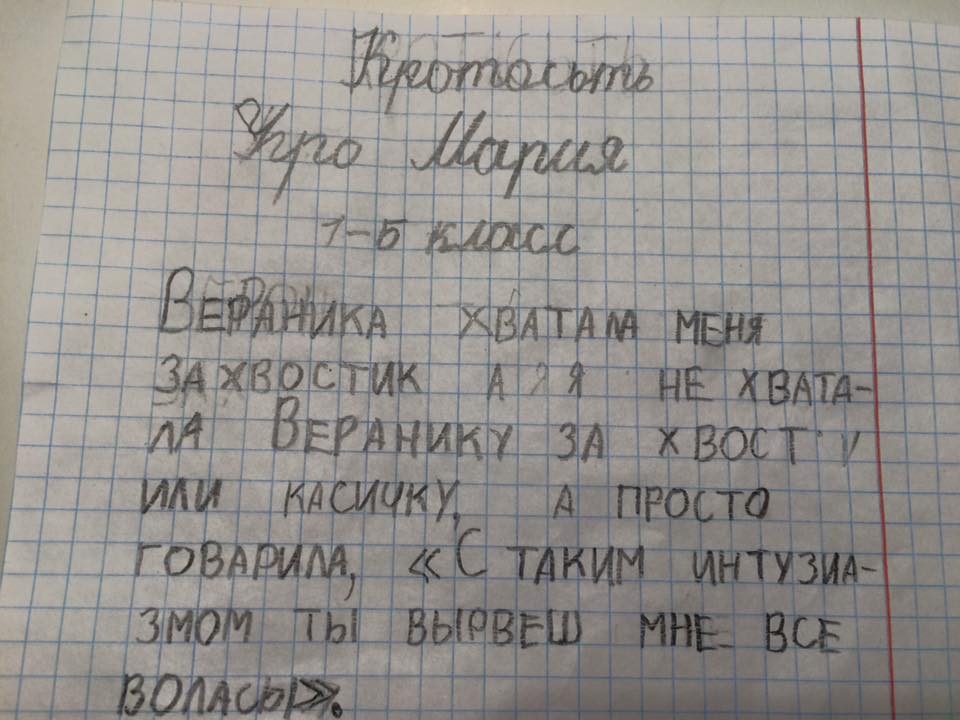 Кротосьть
Укро Мария
1-Б класс
Вераника хватала меня
за хвостик а я не хвата-
ла Веранику за хвост
или касичку, а просто
говарила, «С таким интузиа-
змом ты вырвеш мне все
воласы».